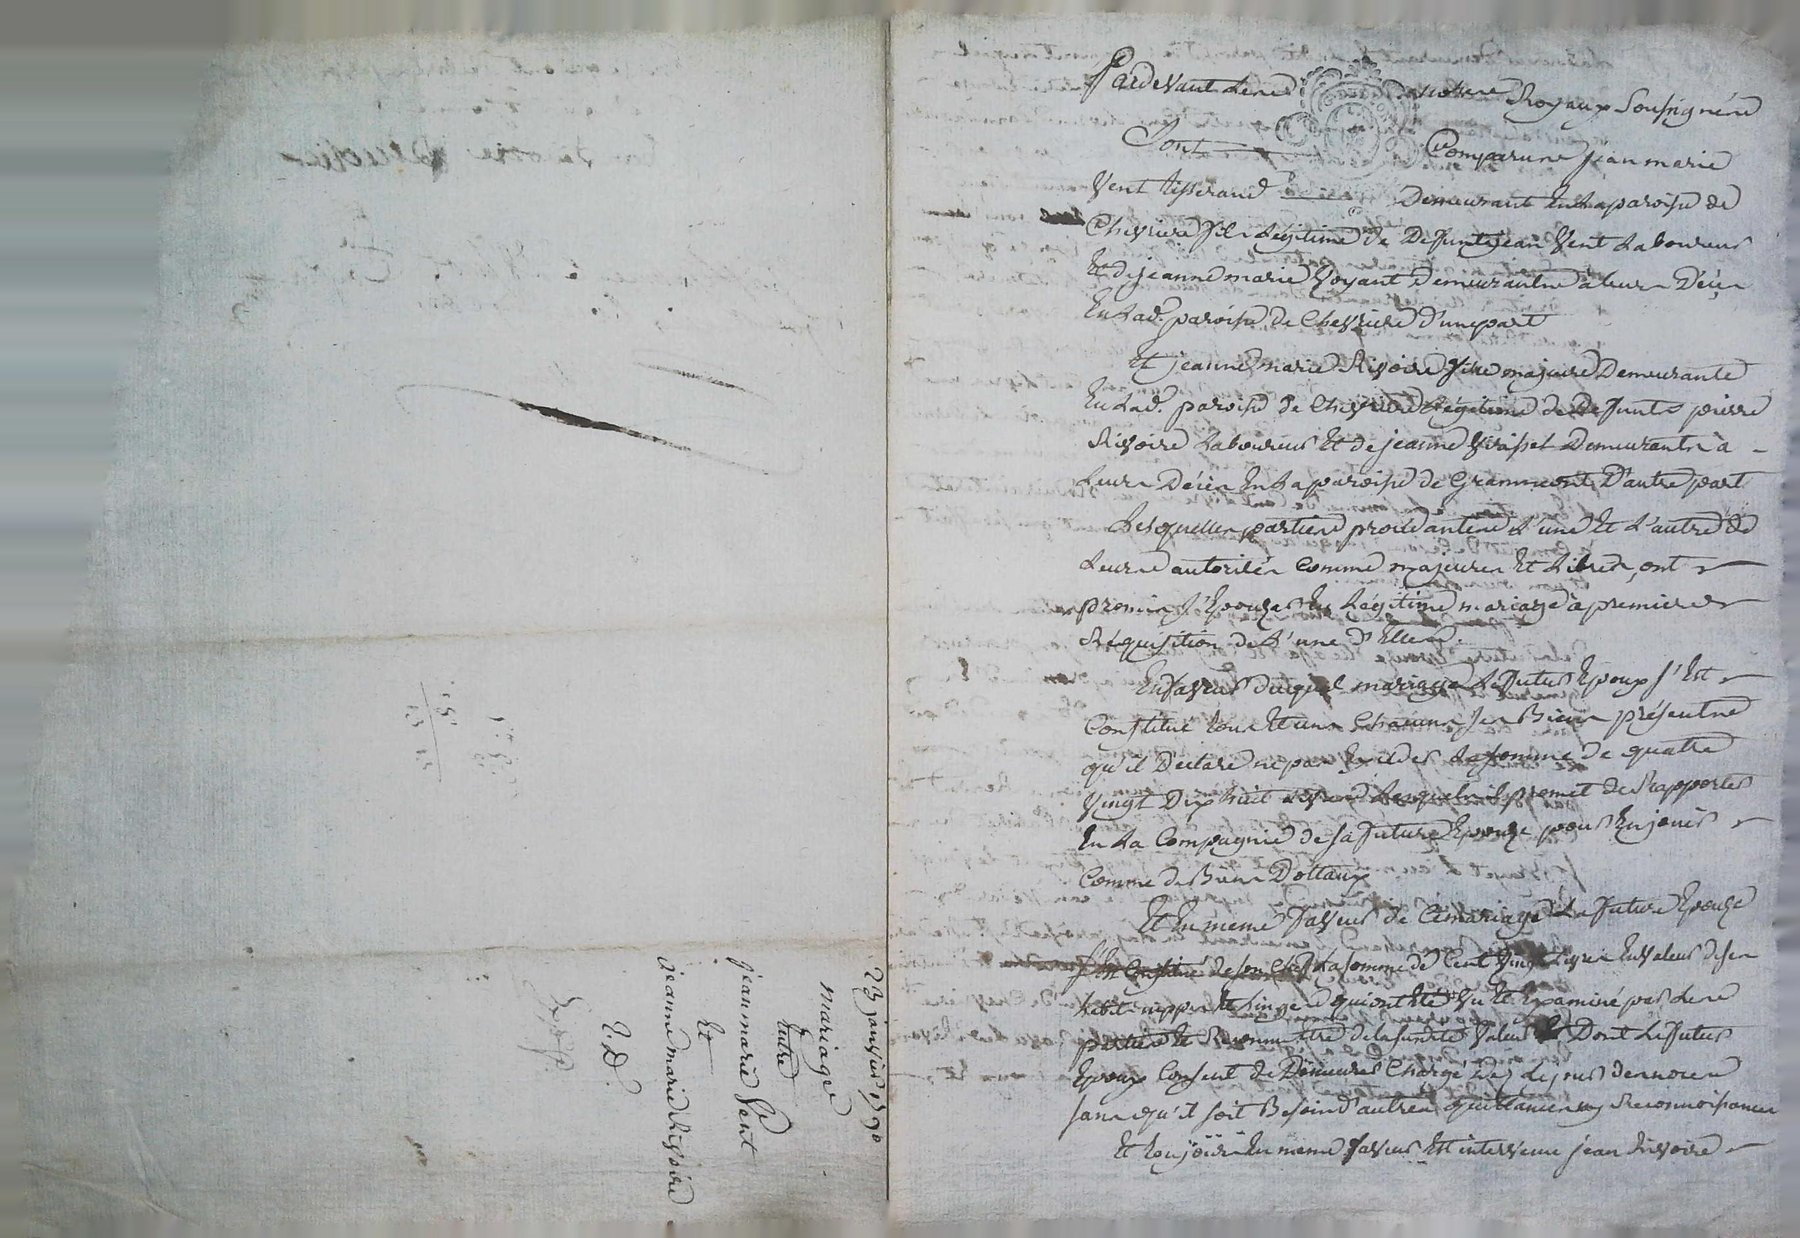 Pardevant Les notaires Royaux Soussignés
Sont Comparus Jean marie
Vent tisserand Demeurant En La paroisse de
Chevrieres fils Légitime de Defunts jean Vent Laboureur
Et de jeanne marie Voyant Demeurants a leurs Décès
En Lad. paroisse de Chevrieres d'une part
Et jeanne marie Rivoire fille majeure Demeurante
En Lad. paroisse de Chevrieres Légitime de Defunts pierre
Rivoire Laboureur Et de jeanne Demeurants a
Leurs Décès En La paroisse de Grammont D'autre part
Lesquelles parties procedantes L'une Et L'autre de
Leurs autorités Comme majeures Et Libres, ont
promis s'Epouser En Légitime mariage à premiere
Réquisition de L'une d'Elles.
En faveur duquel mariage Le futur Epoux s'Est
Constitué tous Et uns Chacuns ses Biens présents
qu'il Déclare ne pas Exceder La somme de quatre
Vingt Dix huit Livres Lesquels il promet de Rapporter
En La Compagnie de sa future Epouse pour En jouir
Comme de Biens Dottaux
Et En meme faveur de Ce mariage La future Epouse
s'Est Constitué de son Chef La somme de Cent Vingt Livres En Valeur de ses
habits nippes Et Linges qui ont Eté Vu Et Examiné par Les
parties Et Reconnu Etre de la susdite Valeur Et Dont Le futur
Epoux Consent de Demeurer Chargé Dez Le jour des noces
sans qu'il soit Besoin d'autres quittances ny Reconnoissances
Et toujours En meme faveur Est intervenu jean Rivoire
23 janvier 1790
mariage
Entre
jean marie Vent
Et
jeanne marie Rivoire
E. D.